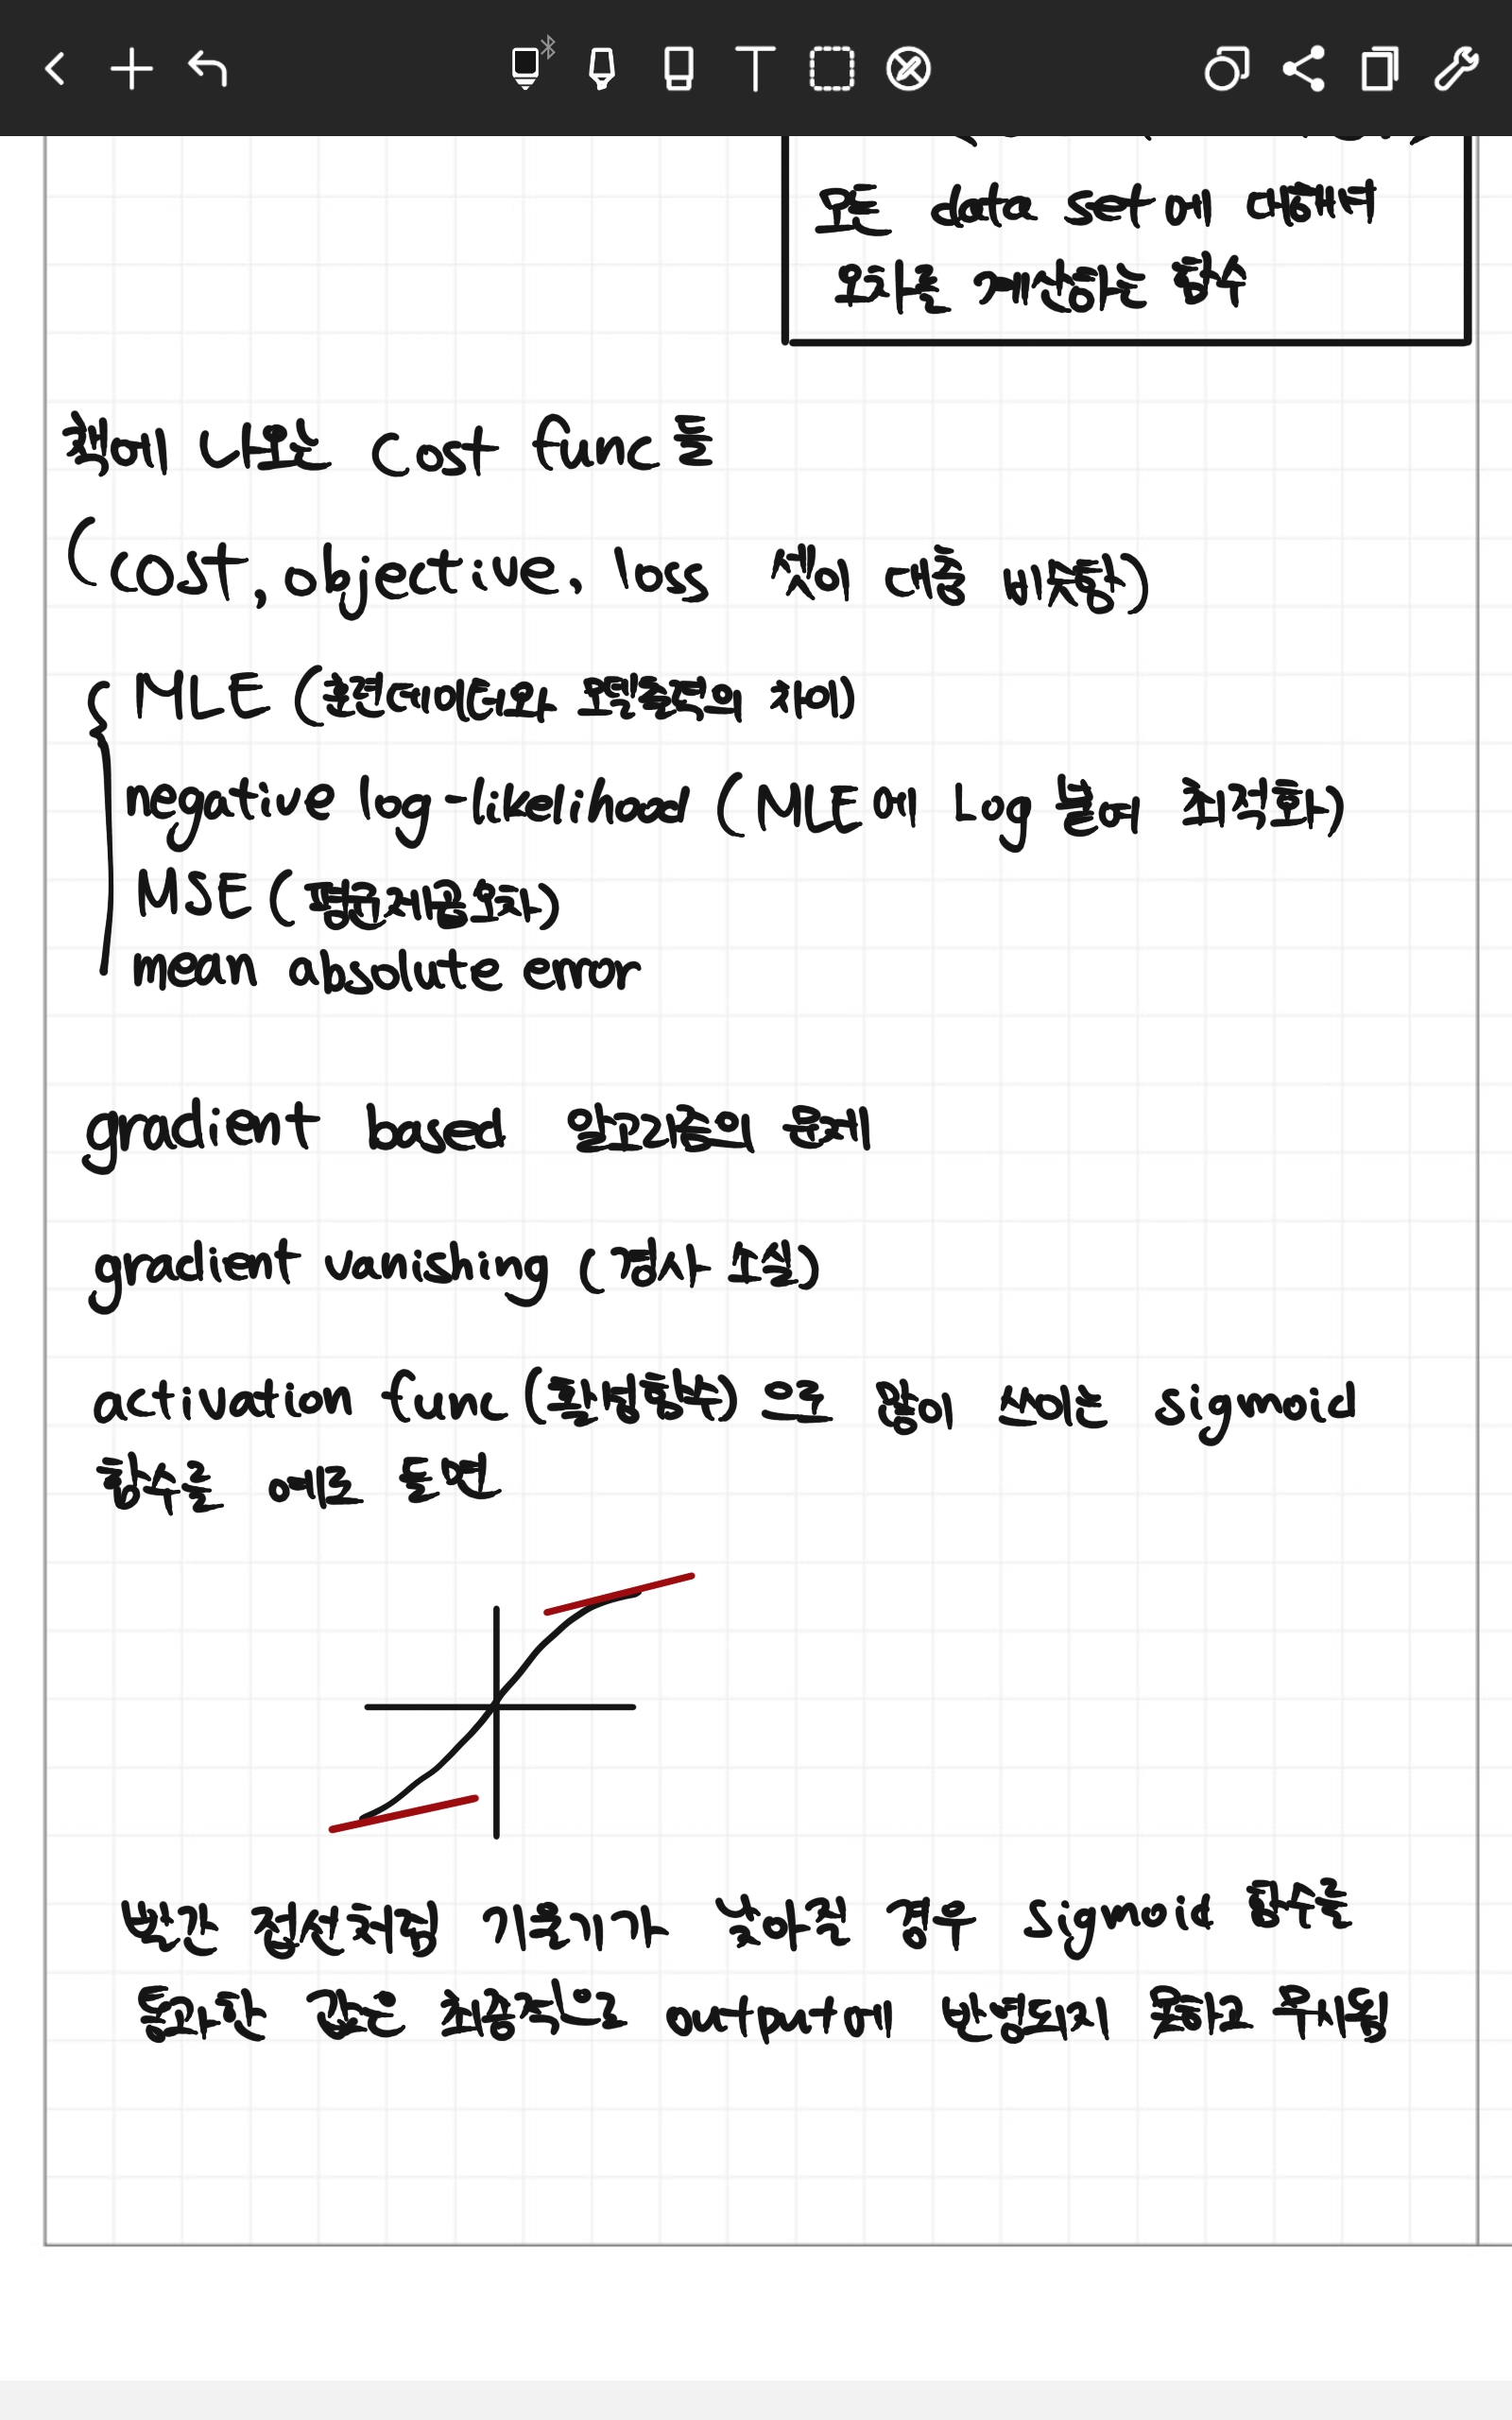 모든 data set에 대해서
오차를 계산하는 함수
책에 나오는 cost func들
(cost, objective, loss 셋이 대충 비슷함)
MLE (훈련데이터와 모델출력의 차이)
negative log-likelihood (MLE에 Log 붙여 최적화)
MSE (평균제곱오차)
mean absolute error
gradient based 알고리즘의 문제
gradient vanishing (경사 소실)
activation func (활성함수) 으로 많이 쓰이는 sigmoid
함수를 예로 들면
빨간 접선처럼 기울기가 낮아질 경우 sigmoid 함수를
통과한 값은 최종적으로 output에 반영되지 못하고 무시됨